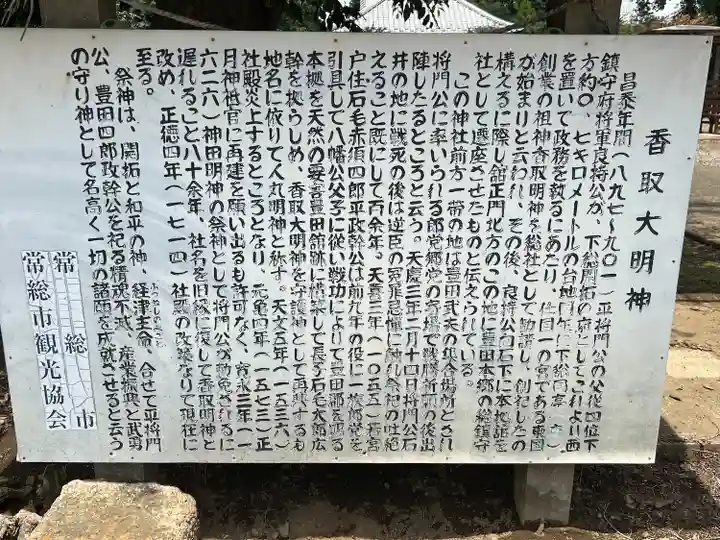 香取大明神
昌泰年間(八九七〜九〇一)平将門公の父従四位下
鎮守府将軍良将公が、下総開拓の府としてこれより西
方約〇、七キロメートルの台地
を置いて政務を執るにあたり、一の宮である東国
創業の祖神香取大明神を総社として勧請し、創祀したの
が始まりと云われ、その後、良将公向石下に本拠
構えるに際し舘正門北方のこの地に豊田本郷の総鎮守
社として遷座させたものと伝えられている。
この神社前方一帯の地は豊田武夫の集合場所とされ
将門公に率いられる郎党郷党の寄場で戦勝祈願の後出
陣したるところと云う。天慶三年二月十四日将門公石
井の地に戦死の後は逆臣の冤罪忌憚に触れ祭祀の吐絶
えること既にして百余年。天喜三年(一〇五五)若宮
戸住石毛赤須四郎平政幹公は前九年の役に一族郎党を
引具して八幡公父子に従い戦功によりて豊田郡を賜る
本拠を天然の要害豊田館跡に構築して長子石毛太郎広
幹を拠らしめ、香取大明神を守護神として再興するも
地名に依りて人丸明神と称す。天文五年(一五三六)
社殿炎上するところとなり、元亀四年(一五七三)正
月神祇官に再建を願い出るも許可なく、寛永三年(一
六二六)神田明神の祭神として将門公が勅免されるに
遅れること八十余年、社名を旧縁に復して香取明神と
改め、正徳四年(一七一四)社殿の改築なりて現在に
至る。
祭神は、開拓と和平の神、経津主命、合せて平将門
公、豊田四郎政幹公を祀る精魂不滅、産業振興と武勇
の守り神として名高く一切の諸願を成就させると云う
常総市
常総市観光協会